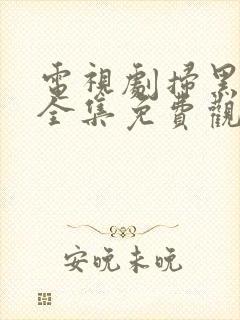 電視劇掃黑
全集免費觀
安晚未晚